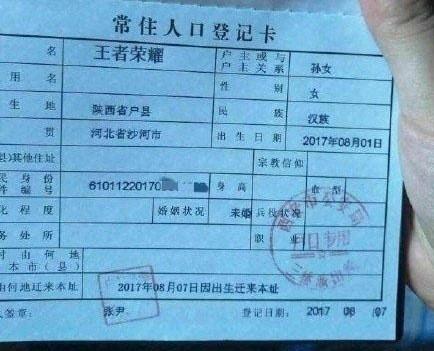 常住人口登记卡
名 王者荣耀 户主或与户主关系 孙女
用名 性别 女
生地 陕西省户县 民族 汉族
贯 河北省沙河市 出生日期 2017年08月01日
县)其他住址 宗教信仰
民身份件编号 6101122017 身高 血型
化程度 婚姻状况 未婚 兵役状况
务处所 职业
时由何地本市(县)
由何地迁来本址 2017年08月07日因出生迁来本址
人签章: 张尹 登记日期: 2017 08 07